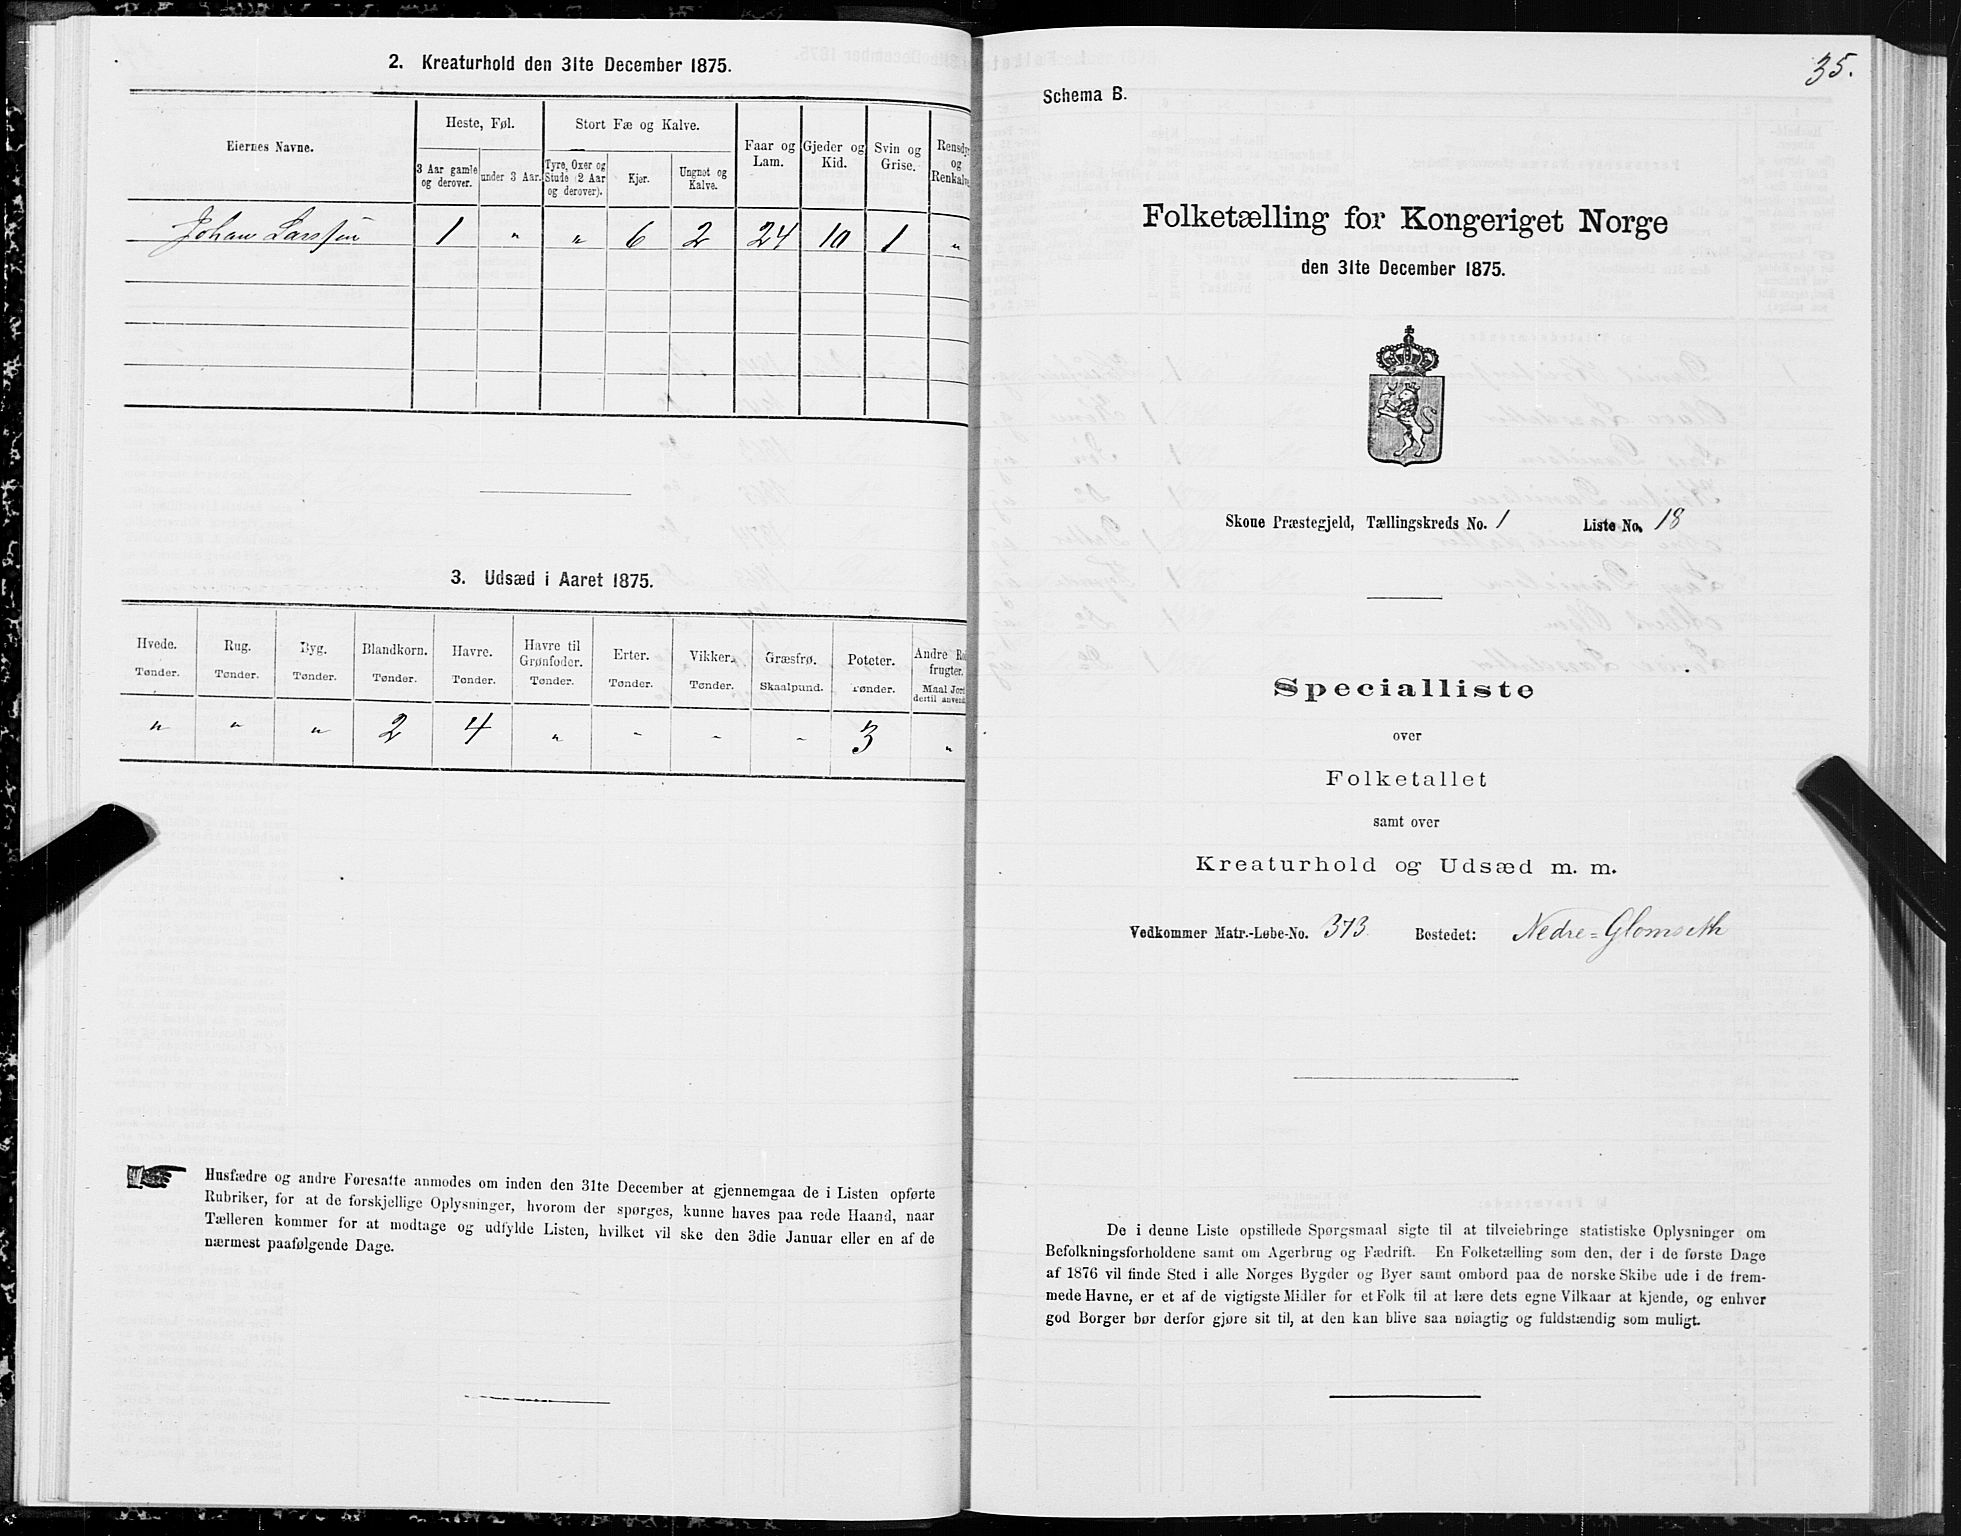 2. Kreaturhold den 31te December 1875.
Eiernes Navne.
Heste, Føl.
Stort Fæ og Kalve.
Faar og Lam.
Gjeder og Kid.
Svin og Grise.
Rensdyr og Renkalve
3 Aar gamle og derover.
under 3 Aar.
Tyre, Oxer og Stude (2 Aar og derover).
Kjør.
Ungnøt og Kalve.
Johan Larssen 1 " " 6 2 24 10 1 "
3. Udsæd i Aaret 1875.
Hvede. Rug. Byg. Blandkorn. Havre. Havre til Grønfoder. Erter. Vikker. Græsfrø. Poteter. Andre Ro frugter.
Tønder. Tønder. Tønder. Tønder. Tønder. Tønder. Tønder. Tønder. Skaalpund. Tønder. Maal Jord dertil anvend
" " " 2 4 " " " " 3 "
Husfædre og andre Foresatte anmodes om inden den 31te December at gjennemgaa de i Listen opførte
Rubriker, for at de forskjellige Oplysninger, hvorom der spørges, kunne haves paa rede Haand, naar
Tælleren kommer for at modtage og udfylde Listen, hvilket vil ske den 3die Januar eller en af de
nærmest paafølgende Dage.
35.
Schema B.
Folketælling for Kongeriget Norge
den 31te December 1875.
Skoue Præstegjeld, Tællingskreds No. 1 Liste No. 18
Specialliste
over
Folketallet
samt over
Kreaturhold og Udsæd m. m.
Vedkommer Matr.-Løbe-No. 373 Bostedet: Nedre=Glomseth
De i denne Liste opstillede Spørgsmaal sigte til at tilveiebringe statistiske Oplysninger om
Befolkningsforholdene samt om Agerbrug og Fædrift. En Folketælling som den, der i de første Dage
af 1876 vil finde Sted i alle Norges Bygder og Byer samt ombord paa de norske Skibe ude i de frem-
mede Havne, er et af de vigtigste Midler for et Folk til at lære dets egne Vilkaar at kjende, og enhver
god Borger bør derfor gjøre sit til, at den kan blive saa nøiagtig og fuldstændig som muligt.